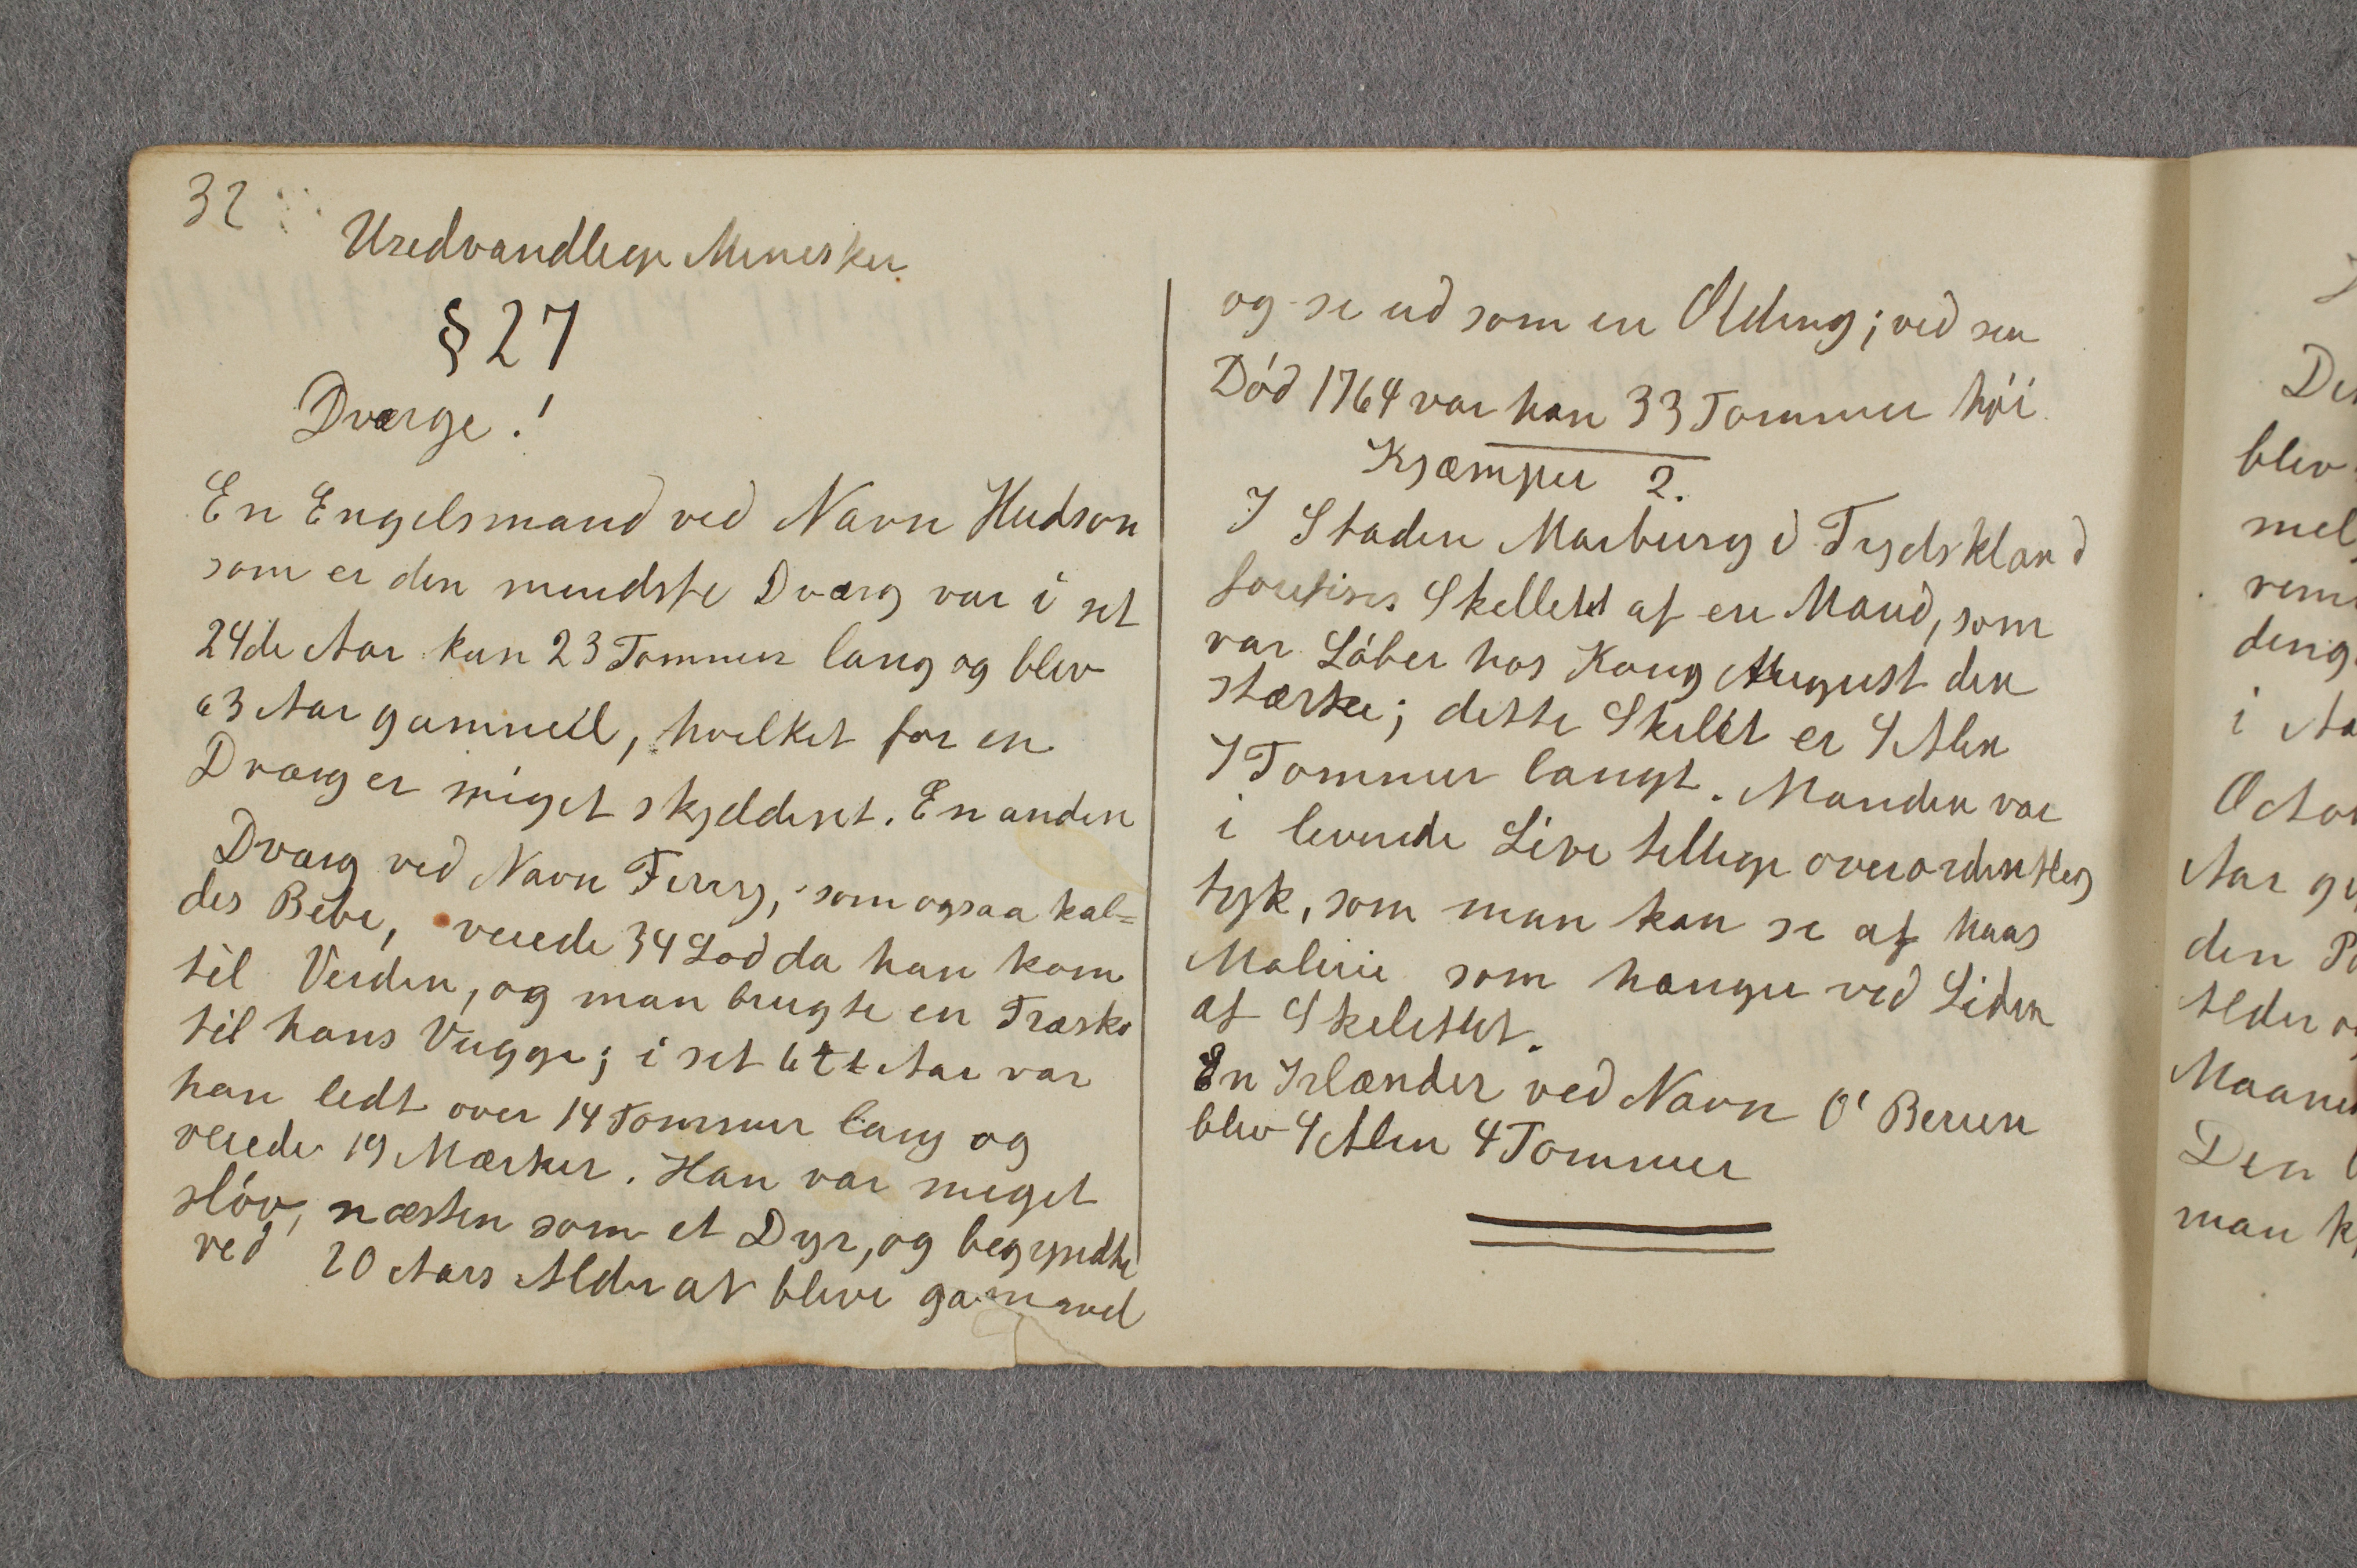 32
Usedvandlige Mennesker.
§ 27
Dværge!
En Engelsmand ved Navn Hudson
som er den mindste Dværg var i sit
24de Aar kun 23 Tommer lang og blev
63 Aar gammel, hvilket for en
Dværg er meget skjeldent. En anden
Dværg ved Navn Ferry, som ogsaa kal=
des Bebe, veiede 34 Lod da han kom
til Verden, og man brugte en Træsko
til hans Vugge; i sit 6te Aar var
han lidt over 14 Tommer lang og
veiede 19 Mærker. Han var meget
sløv, næsten som et Dyr, og begyndte
ved 20 Aars Alder at blive gammel
og se ud som en Olding; ved sin
Död 1764 var han 33 Tommer höi
Kjæmper 2.
I Staden Marburg i Tydskland
forefines Skellett af en Mand, som
var Löber hos Kong August den
stærke; dette Skelet er 4 Alen
7 Tommer langt. Manden var
i levende Live tillige overordentleg
tyk, som man kan se af hans
Maleri som hænger ved Siden
af Skelettet.
En Irlænder ved Navn O' Berien
blev 4 Alen 4 Tommer
blev
i Aa
Aar
den
Alder
Den
man